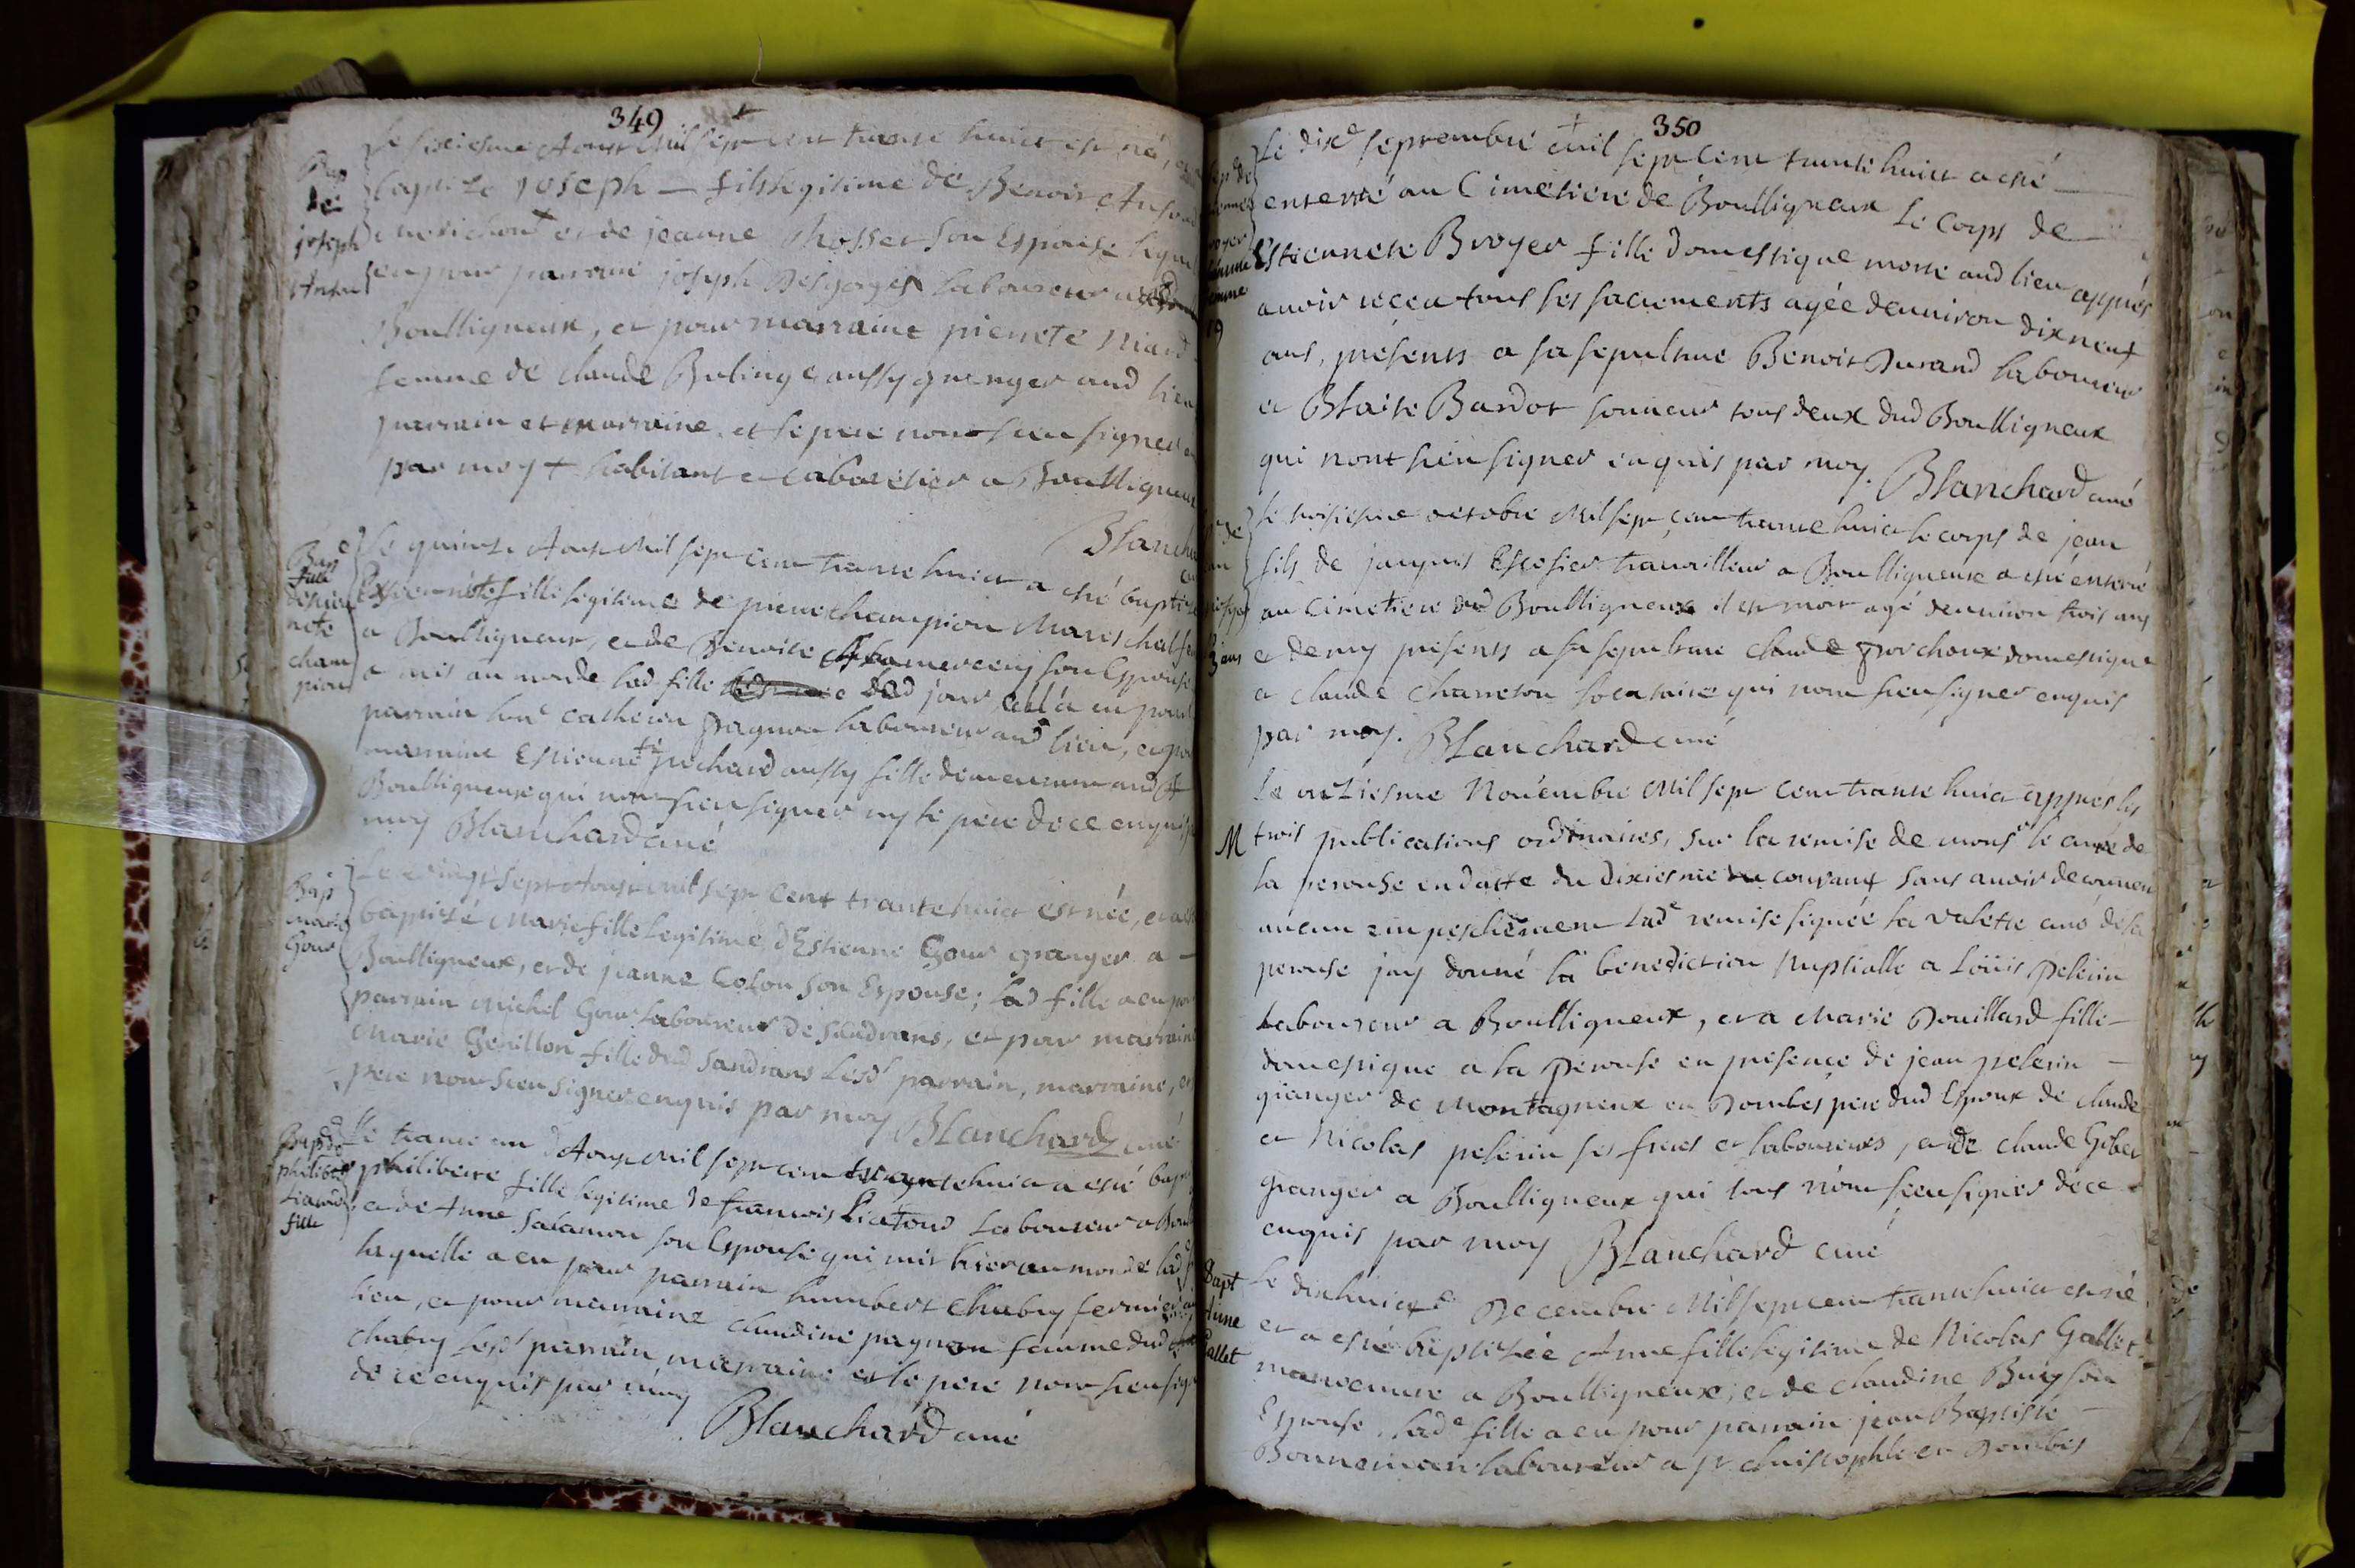 349
Le sixiesme Aoust Mil sept cent trante huict est né, et
Bap
baptisé joseph — fils legitime de Benoit
de
joseph
et de jeanne son Espouse lequel
a eu pour parrain joseph Desgorges laboureur
Boulligneux, et pour marraine pierrete Niard
femme de claude Bulinge aussy granger aud lieu
parrain et marraine et le pere nont sceu signer
par moy + habitant et cabaretier a Boulligneux
Blanchard
Le quinze Aoust Mil sept cent trante huict a esté baptisé
Bap
fille
Estiennete fille legitime de pierre champion Mareschal
destien
nete
a Boulligneux, et de Benoite son Espouse
cham
pion
a mis au monde lad fille dud jour, elle a eu pour
parrain catherin pagnon laboureur aud lieu, et pour
marraine Estiennete pechard aussy fille demeurant aud
Boulligneux qui nont sceu signer ny le pere de ce enquis
moy Blanchard curé
Le vingt sept Aoust mil sept cent trante huict est née, et a esté
Bap
marie
Gour
baptisé Marie fille legitime d'Estienne Gour granger a —
Boulligneux, et de jeanne Colon son Espouse; lad fille a eu pour
parrain Michel Gour laboureur de Sandrans, et pour marraine
Marie Genillon fille dud Sandrans Lesd parrain, marraine, et
pere nont sceu signer enquis par moy Blanchard curé
Le trante un d'Aoust Mil sept cent trante huict a esté bapt
Bap de
philiberte
Liatoud
fille
philiberte fille legitime de francois Liatoud Laboureur a Boul
et de Anne Salamon son Espouse qui mit hier au monde lad
laquelle a eu pour parrain humbert Chabry fermier
lieu, et pour marraine claudine pagnon femme dud
chabry Lesd parrain, marraine et le pere nont sceu sig
de ce enquis par moy
Blanchard curé
350
Le dixe septembre Mil sept cent trante huict a esté —
enterré au Cimetiere de Boulligneux Le corps de —
Estiennete Broyer fille domestique morte aud lieu appres
avoir receu tous ses sacrements agée denviron dix neuf
19
ans, presents a sa sepulture Benoit Durand laboureur
et Blaise Bardot sonneur tous deux dud Boulligneux
qui nont sceu signer enquis par moy. Blanchard curé
Le troisiesme octobre Mil sept cent trante huict le corps de jean
fils de jacques Escosier travailleur a Boulligneux a esté enterré
au Cimetiere dud Boulligneux il est mort agé denviron trois ans
3 ans
et demy presents a sa sepulture claude porchoux domestique
a claude charreton locataire qui nont sceu signer enquis
par moy. Blanchard curé
Le onziesme Novembre Mil sept cent trante huict appres les
M
trois publications ordinaires, sur la remise de monsr le curé de
la perouse en datte du dixiesme du courant sans avoir decouvert
aucun empeschement lade remise signée la valette curé de la
perouse jay donné la benediction Nuptialle a Loüis pelerin
Laboureur a Boulligneux, et a Marie Douillard fille —
domestique a la perouse en presence de jean pelerin —
granger de Montagneux en Dombes pere dud Espoux de claude
et Nicolas pelerin ses freres et laboureurs, et de claude Gober
granger a Boulligneux qui tous nont sceu signer de ce
enquis par moy Blanchard curé
Le dixhuicte Decembre Mil sept cent trante huict est né
Bapt
Anne
Gallet
et a esté baptisée Anne fille legitime de Nicolas Gallet
manoeuvre a Boulligneux, et de claudine Bury son
Espouse. lade fille a eu pour parrain jean Baptiste —
Bonneman laboureur a st christophle en Dombes